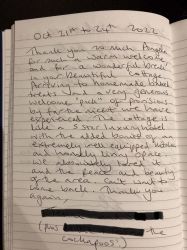 Oct 21st to 24th 2022
Thank you so much Angela
for such a warm welcome
and for a wonderful break
in your beautiful cottage.
Arriving to homemade baked
treats and a very generous
welcome "pack" of provisions
by far the nicest we have
experienced. The cottage is
like a 5 star luxury hotel
with the added bonus of an
extremely well equipped kitchen
and homely living space.
We absolutely loved it
and the peace and beauty
of the area. Can't wait to
come back. Thank you
again,
(plus the
cockapoos!)